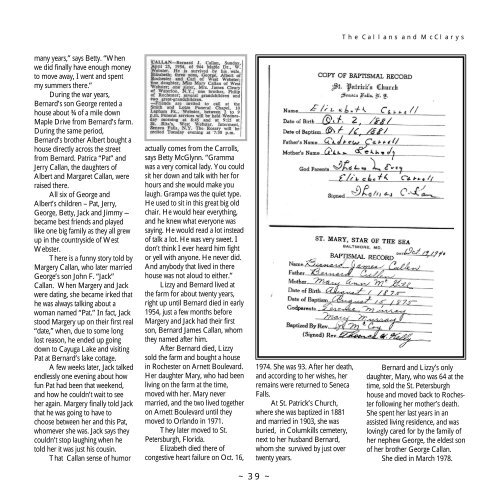 The Callans and McClarys
many years," says Betty. "When
we did finally have enough money
to move away, I went and spent
my summers there."
During the war years,
Bernard's son George rented a
house about ¾ of a mile down
Maple Drive from Bernard's farm.
During the same period,
Bernard's brother Albert bought a
house directly across the street
from Bernard. Patrica "Pat" and
Jerry Callan, the daughters of
Albert and Margaret Callan, were
raised there.
All six of George and
Albert's children – Pat, Jerry,
George, Betty, Jack and Jimmy –
became best friends and played
like one big family as they all grew
up in the countryside of West
Webster.
There is a funny story told by
Margery Callan, who later married
George's son John F. "Jack"
Callan. When Margery and Jack
were dating, she became irked that
he was always talking about a
woman named "Pat." In fact, Jack
stood Margery up on their first real
"date," when, due to some long
lost reason, he ended up going
down to Cayuga Lake and visiting
Pat at Bernard's lake cottage.
A few weeks later, Jack talked
endlessly one evening about how
fun Pat had been that weekend,
and how he couldn't wait to see
her again. Margery finally told Jack
that he was going to have to
choose between her and this Pat,
whomever she was. Jack says they
couldn't stop laughing when he
told her it was just his cousin.
That Callan sense of humor
CALLAN—Bernard J. Callan, Sunday,
April 25, 1954, of 944 Maple Dr.,
Webster. He is survived by his wife,
Elizabeth; three sons, George, Albert of
Rochester and Carl of West Webster;
one daughter, Miss Mary Callan of West
Webster; one sister, Mrs. James Cleary
of Waterloo, N.Y.; one brother, Philip
of Rochester; several grandchildren and
great-grandchildren.
—Friends are invited to call at the
Funeral services will be held Wednes-
day morning at 8:45 and at 9:15 at
St. Rita's, West Webster. Interment,
Seneca Falls, N.Y. The Rosary will be
recited Tuesday evening at 7:30 p.m.
actually comes from the Carrolls,
says Betty McGlynn. "Gramma
was a very comical lady. You could
sit her down and talk with her for
hours and she would make you
laugh. Grampa was the quiet type.
He used to sit in this great big old
chair. He would hear everything,
and he knew what everyone was
saying. He would read a lot instead
of talk a lot. He was very sweet. I
don't think I ever heard him fight
or yell with anyone. He never did.
And anybody that lived in there
house was not aloud to either."
Lizzy and Bernard lived at
the farm for about twenty years,
right up until Bernard died in early
1954, just a few months before
Margery and Jack had their first
son, Bernard James Callan, whom
they named after him.
After Bernard died, Lizzy
sold the farm and bought a house
in Rochester on Arnett Boulevard.
Her daughter Mary, who had been
living on the farm at the time,
moved with her. Mary never
married, and the two lived together
on Arnett Boulevard until they
moved to Orlando in 1971.
They later moved to St.
Petersburg, Florida.
Elizabeth died there of
congestive heart failure on Oct. 16,
COPY OF BAPTISMAL RECORD
St. Patrick's Church
Seneca Falls, N. Y.
Name Elizabeth Carroll
Date of Birth Oct. 2, 1881
Date of Baptism Oct 16, 1881
Father's Name Andrew Carroll
Mother's Name Ann Kennedy
God Parents Thomas
Elizabeth Carroll
Signed Thomas
ST. MARY, STAR OF THE SEA
BALTIMORE, MD.
BAPTISMAL RECORD
Name Bernard James Callan
Father Bernard Callan
Mother Mary Ann
Date of Birth August 1, 1875
Date of Baptism August 15, 1875
Godparents Murray
Mary Murray
Baptized By Rev. McCoy
(Signed) Rev.
1974. She was 93. After her death,
and according to her wishes, her
remains were returned to Seneca
Falls.
At St. Patrick's Church,
where she was baptized in 1881
and married in 1903, she was
buried, in Columkills cemetery,
next to her husband Bernard,
whom she survived by just over
twenty years.
Bernard and Lizzy's only
daughter, Mary, who was 64 at the
time, sold the St. Petersburgh
house and moved back to Roches-
ter following her mother's death.
She spent her last years in an
assisted living residence, and was
lovingly cared for by the family of
her nephew George, the eldest son
of her brother George Callan.
She died in March 1978.
~ 39 ~